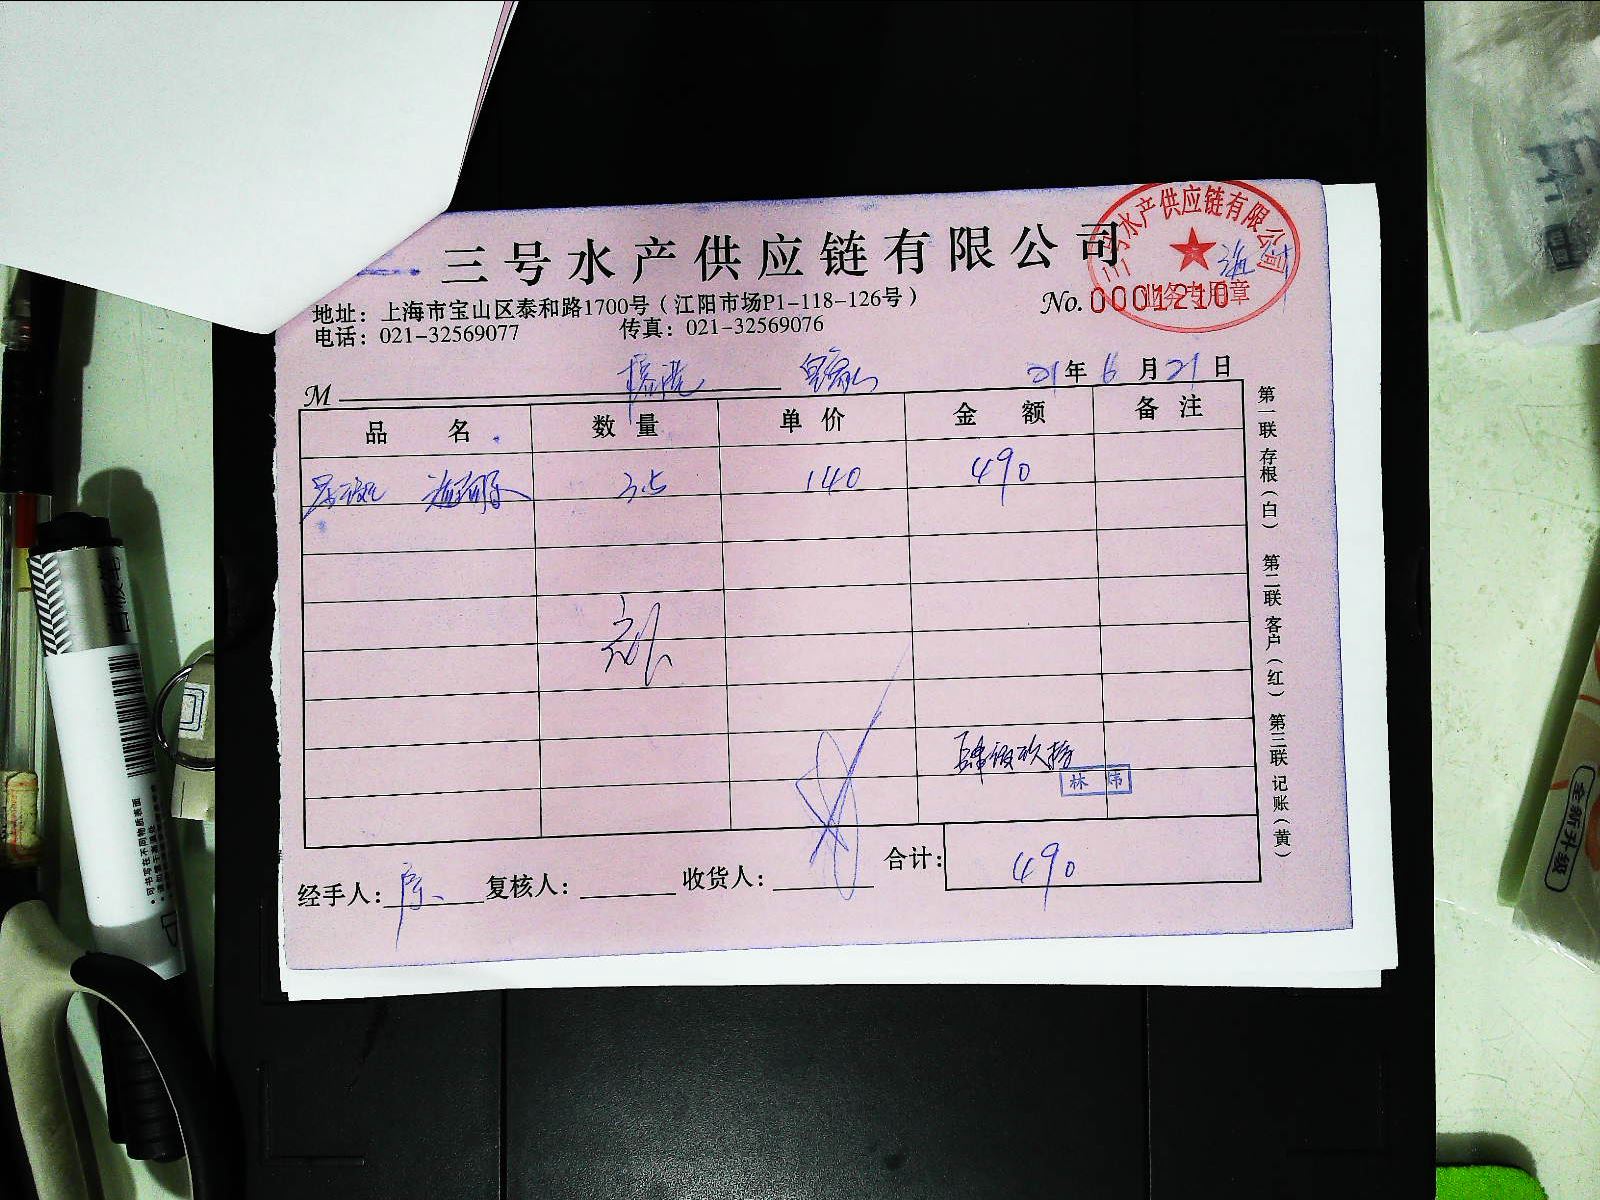 三号水产供应链有限公司
三号水产供应链有限公司
业务专用章
地址：上海市宝山区泰和路1700号（江阳市场P1-118-126号）
No. 0001210
电话：021-32569077 传真：021-32569076
M 21年6月21日
品名 数量 单价 金额 备注
3.5 140 490
肆佰玖拾
林伟
合计： 490
经手人：陈 复核人： 收货人：
第一联 存根（白） 第二联 客户（红） 第三联 记账（黄）
白板笔
可书写在不同物质表面
全新升级